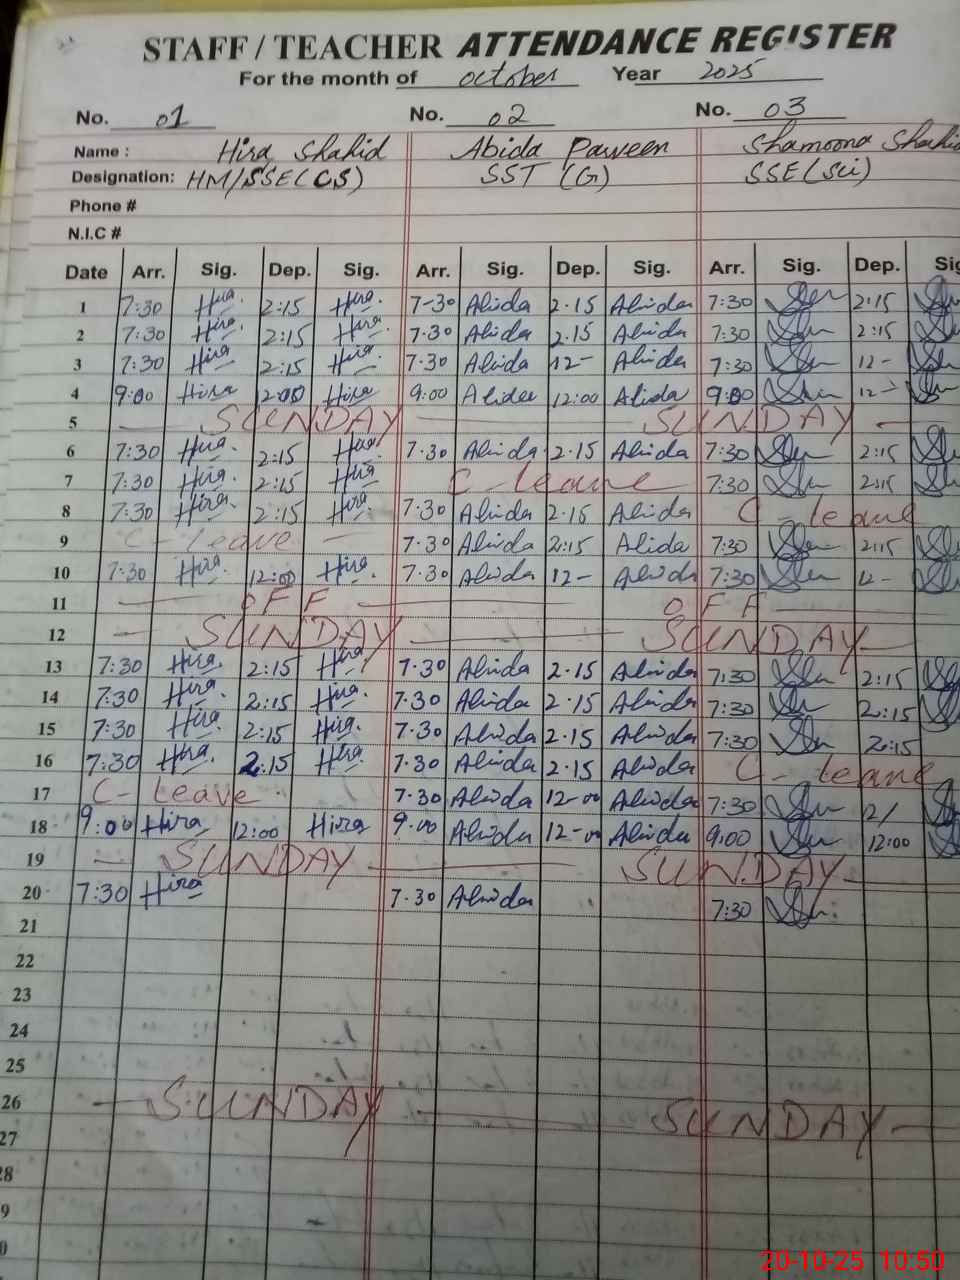 STAFF / TEACHER ATTENDANCE REGISTER
For the month of october Year 2025
No. 01 No. 02 No. 03
Name : Hira Shahid Abida Parveen Shamoona Shahid
Designation: HM/SSE(CS) SST (G) SSE(Sci)
Phone #
N.I.C #
Date Arr. Sig. Dep. Sig. Arr. Sig. Dep. Sig. Arr. Sig. Dep. Sig
1 7:30 Hira. 2:15 Hira. 7-30 Abida 2.15 Abida 7:30 2:15
2 7:30 Hira. 2:15 Hira. 7.30 Abida 2.15 Abida 7:30 2:15
3 7:30 Hira 2:15 Hira. 7.30 Abida 12- Abida 7:30 12-
4 9:00 Hira 2:00 Hira 9:00 Abida 12:00 Abida 9:00 12-
5 SUNDAY SUNDAY
6 7:30 Hira. 2:15 Hira. 7.30 Abida 2.15 Abida 7:30 2:15
7 7:30 Hira. 2:15 Hira C-leave 7:30 2:15
8 7:30 Hira. 2:15 Hira. 7.30 Abida 2.15 Abida C-leave
9 C-leave 7.30 Abida 2:15 Abida 7:30 2:15
10 7:30 Hira. 12:00 Hira. 7.30 Abida 12- Abida 7:30 12-
11 OFF OFF
12 SUNDAY SUNDAY
13 7:30 Hira. 2:15 Hira. 7.30 Abida 2.15 Abida 7:30 2:15
14 7:30 Hira. 2:15 Hira. 7.30 Abida 2.15 Abida 7:30 2:15
15 7:30 Hira 2:15 Hira. 7.30 Abida 2.15 Abida 7:30 2:15
16 7:30 Hira. 2:15 Hira. 7.30 Abida 2.15 Abida C-leave
17 C-Leave 7.30 Abida 12-00 Abida 7:30 12/
18 9:00 Hira 12:00 Hira 9.00 Abida 12-00 Abida 9:00 12:00
19 SUNDAY SUNDAY
20 7:30 Hira 7.30 Abida 7:30
21
22
23
24
25
26 SUNDAY SUNDAY
27
28
9
0
20-10-25 10:50